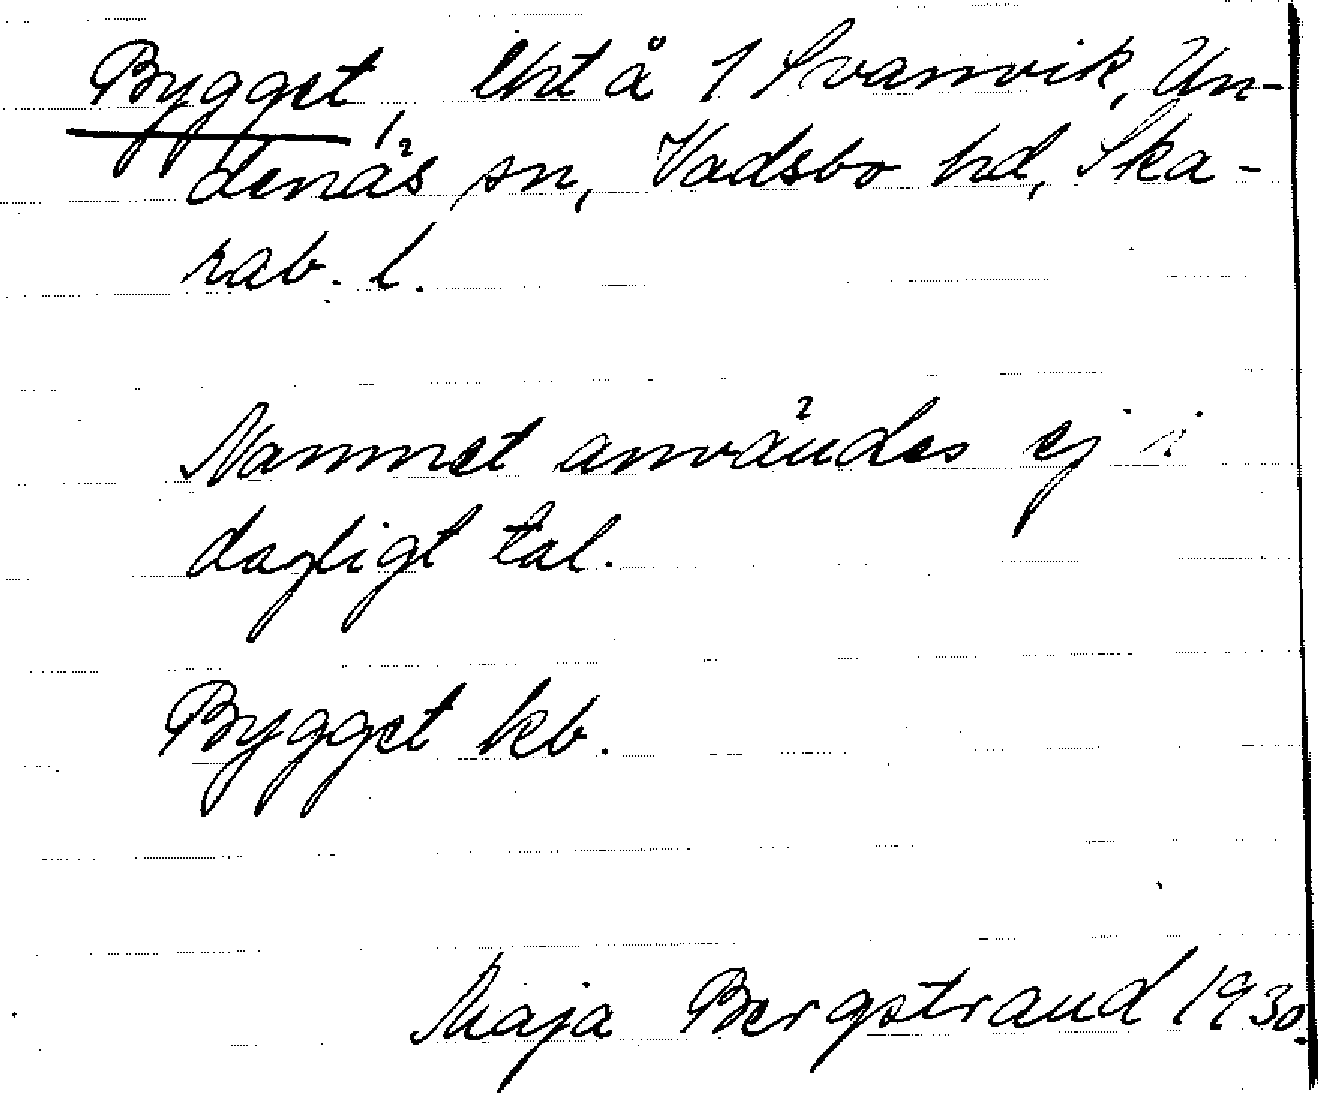 Bygget, lht å 1 Svanvik, Un-
denäs sn, Vadsbo hd, Ska-
rab. l.
Namnet användes ej i
dagligt tal.
Bygget kb.
Maja Bergstrand 1930.